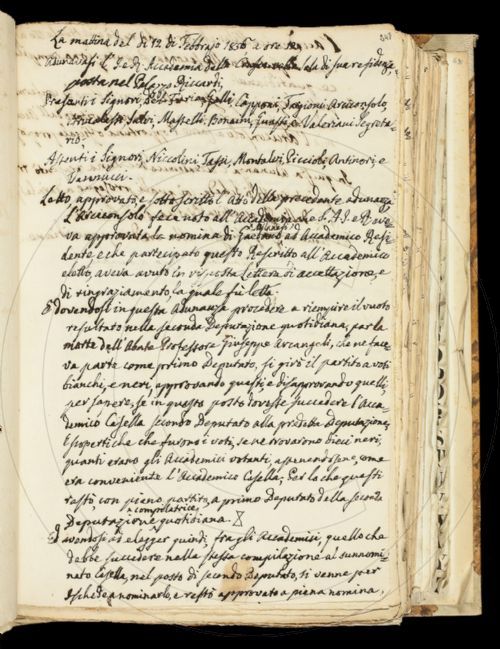 La mattina del dì 12 di Febbrajo 1856 a ore
Adunavasi l'I. e R. Accademia della Crusca nella sala di sua residenza
posta nel Palazzo Riccardi,
Presenti i Signori, Del Furia, Gelli, Capponi, Targioni Arciconsolo,
Arcangeli, Salvi, Maselli, Bonaini, Guasti, e Valeriani Segreta-
rio.
Assenti i Signori, Niccolini, Tassi, Montalvi, Piccioli, Antinori, e
Vannucci.
Letto, approvato, e sottoscritto l'Atto della precedente adunanza
L'Arciconsolo fece noto all'Accademia che S. A. I. e R. ave-
va approvata la nomina di Gaetano ad Accademico Resi-
dente, e che partecipato questo Rescritto all'Accademico
eletto, aveva avuto in risposta Lettera di accettazione, e
di ringraziamento, la quale fu letta.
E dovendosi in questa Adunanza procedere a riempire il vuoto
resultato nella seconda Deputazione quotidiana, par la
morte dell'Abate Professore Giuseppe Arcangeli, che ne face-
va parte come primo Deputato, si girò il partito a voti
bianchi, e neri, approvando questi, e disapprovando quelli,
per sapere, se in questo posto dovesse succedere l'Acca-
demico Casella secondo Deputato alla predetta Deputazione,
E sperti che che furono i voti, se ne trovarono dieci neri,
quanti erano gli Accademici votanti, astenendosene, come
era conveniente l'Accademico Casella; Per lo che questi
restò, con pieno partito, a primo Deputato della seconda
compilatrice
Deputazione quotidiana.
E avendosi ad elegger quindi, fra gli Accademici, quello che
debbe succedere nella stessa compilazione al sunnomi-
nato Casella, nel posto di secondo Deputato, si venne per
ischede a nominarlo, e restò approvato a piena nomina,